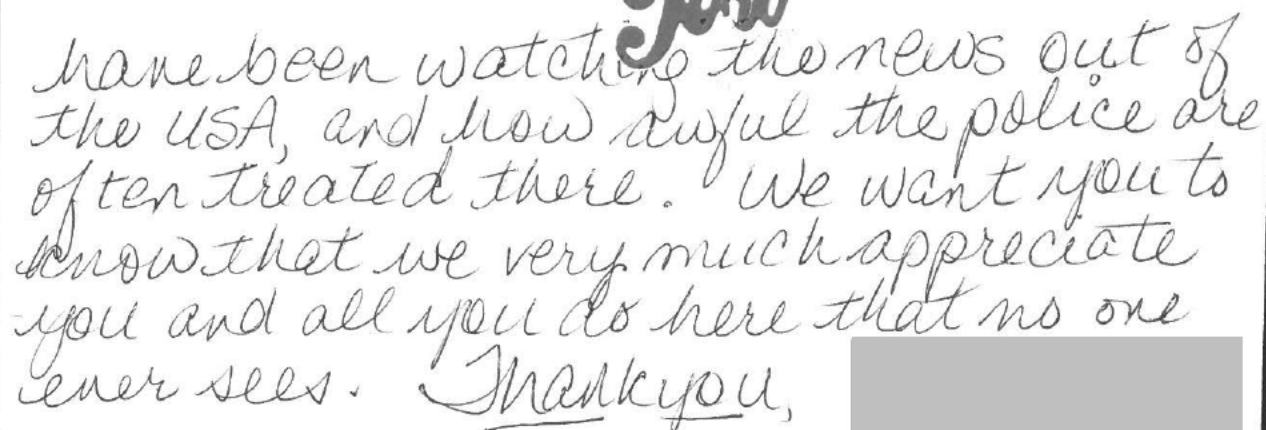 have been watching the news out of
the USA, and how awful the police are
often treated there. We want you to
know that we very much appreciate
you and all you do here that no one
ever sees. Thank you,